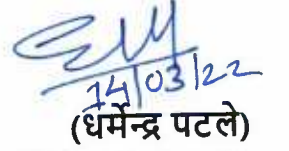 14/03/22
(धर्मेन्द्र पटले)